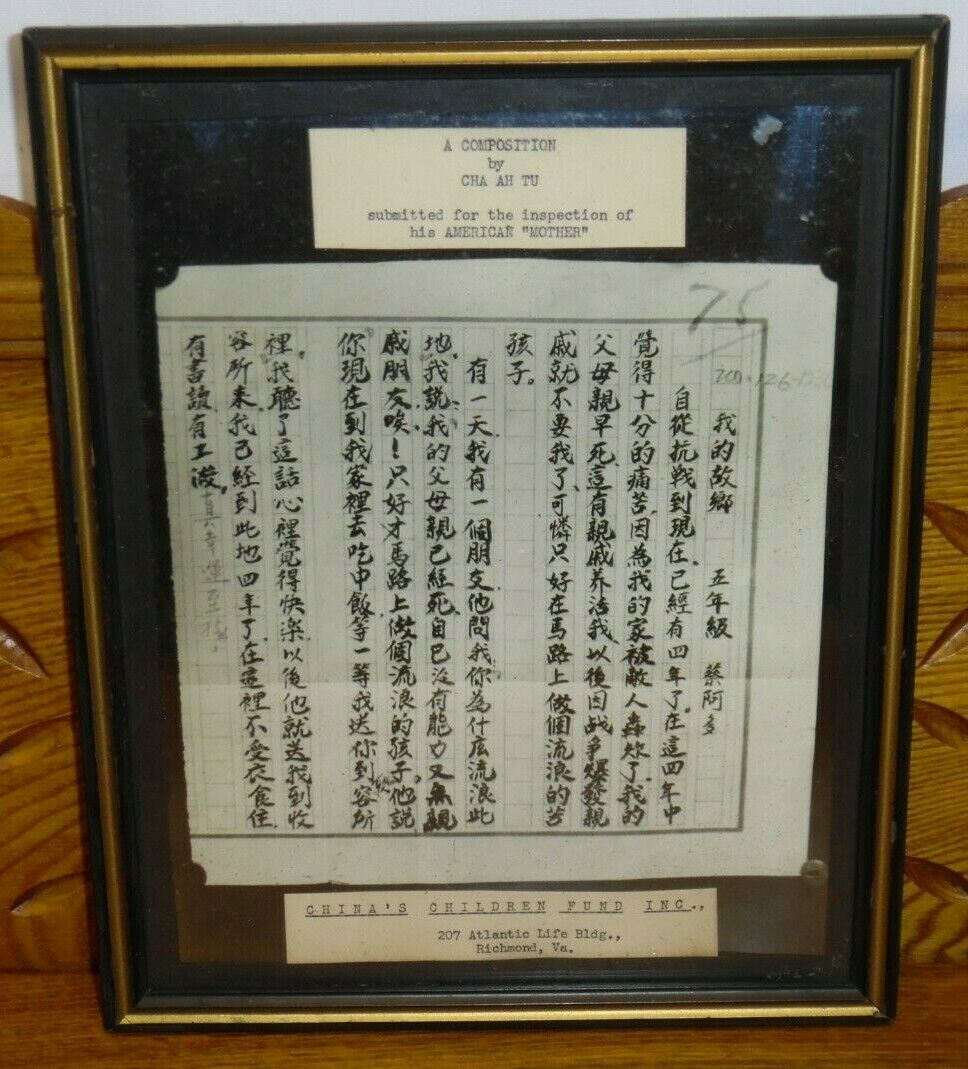 A COMPOSITION
by
CHA AH TU
submitted for the inspection of
his AMERICAN "MOTHER"
75
我的故鄉 五年級 蔡阿多
自從抗戰到現在、已經有四年了、在這四年中
覺得十分的痛苦、因為我的家被敵人轟炸了、我的
父母親早死、這有親戚养活我、以後因战爭爆發、親
戚就不要我了、可憐只好在馬路上做個流浪的苦
孩子。
有一天我有一個朋友、他問我、你為什庅流浪此
地、我說我的父母親已經死、自己沒有能力、又無親
戚朋友、唉！只好才馬路上做個流浪的孩子。他説
你現在到我家裡去吃中飯、等一等我送你到容所
裡、我聽了這話心裡覺得快樂、以後他就送我到收
容所來、我已經到此地四年了、在這裡不受衣食住、
有書讀、有工做、
CHINA'S CHILDREN FUND INC.,
207 Atlantic Life Bldg.,
Richmond, Va.